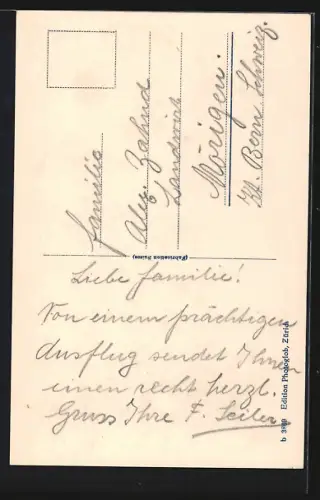 Familie
Alex. Zahnd
Landwirt
Mörigen.
Kt. Bern Schweiz.
(Fabrication Suisse)
Liebe Familie!
Von einem prächtigen
Ausflug sendet Ihnen
einen recht herzl.
Gruss Ihre F. Seiler
Edition Photoglob, Zürich